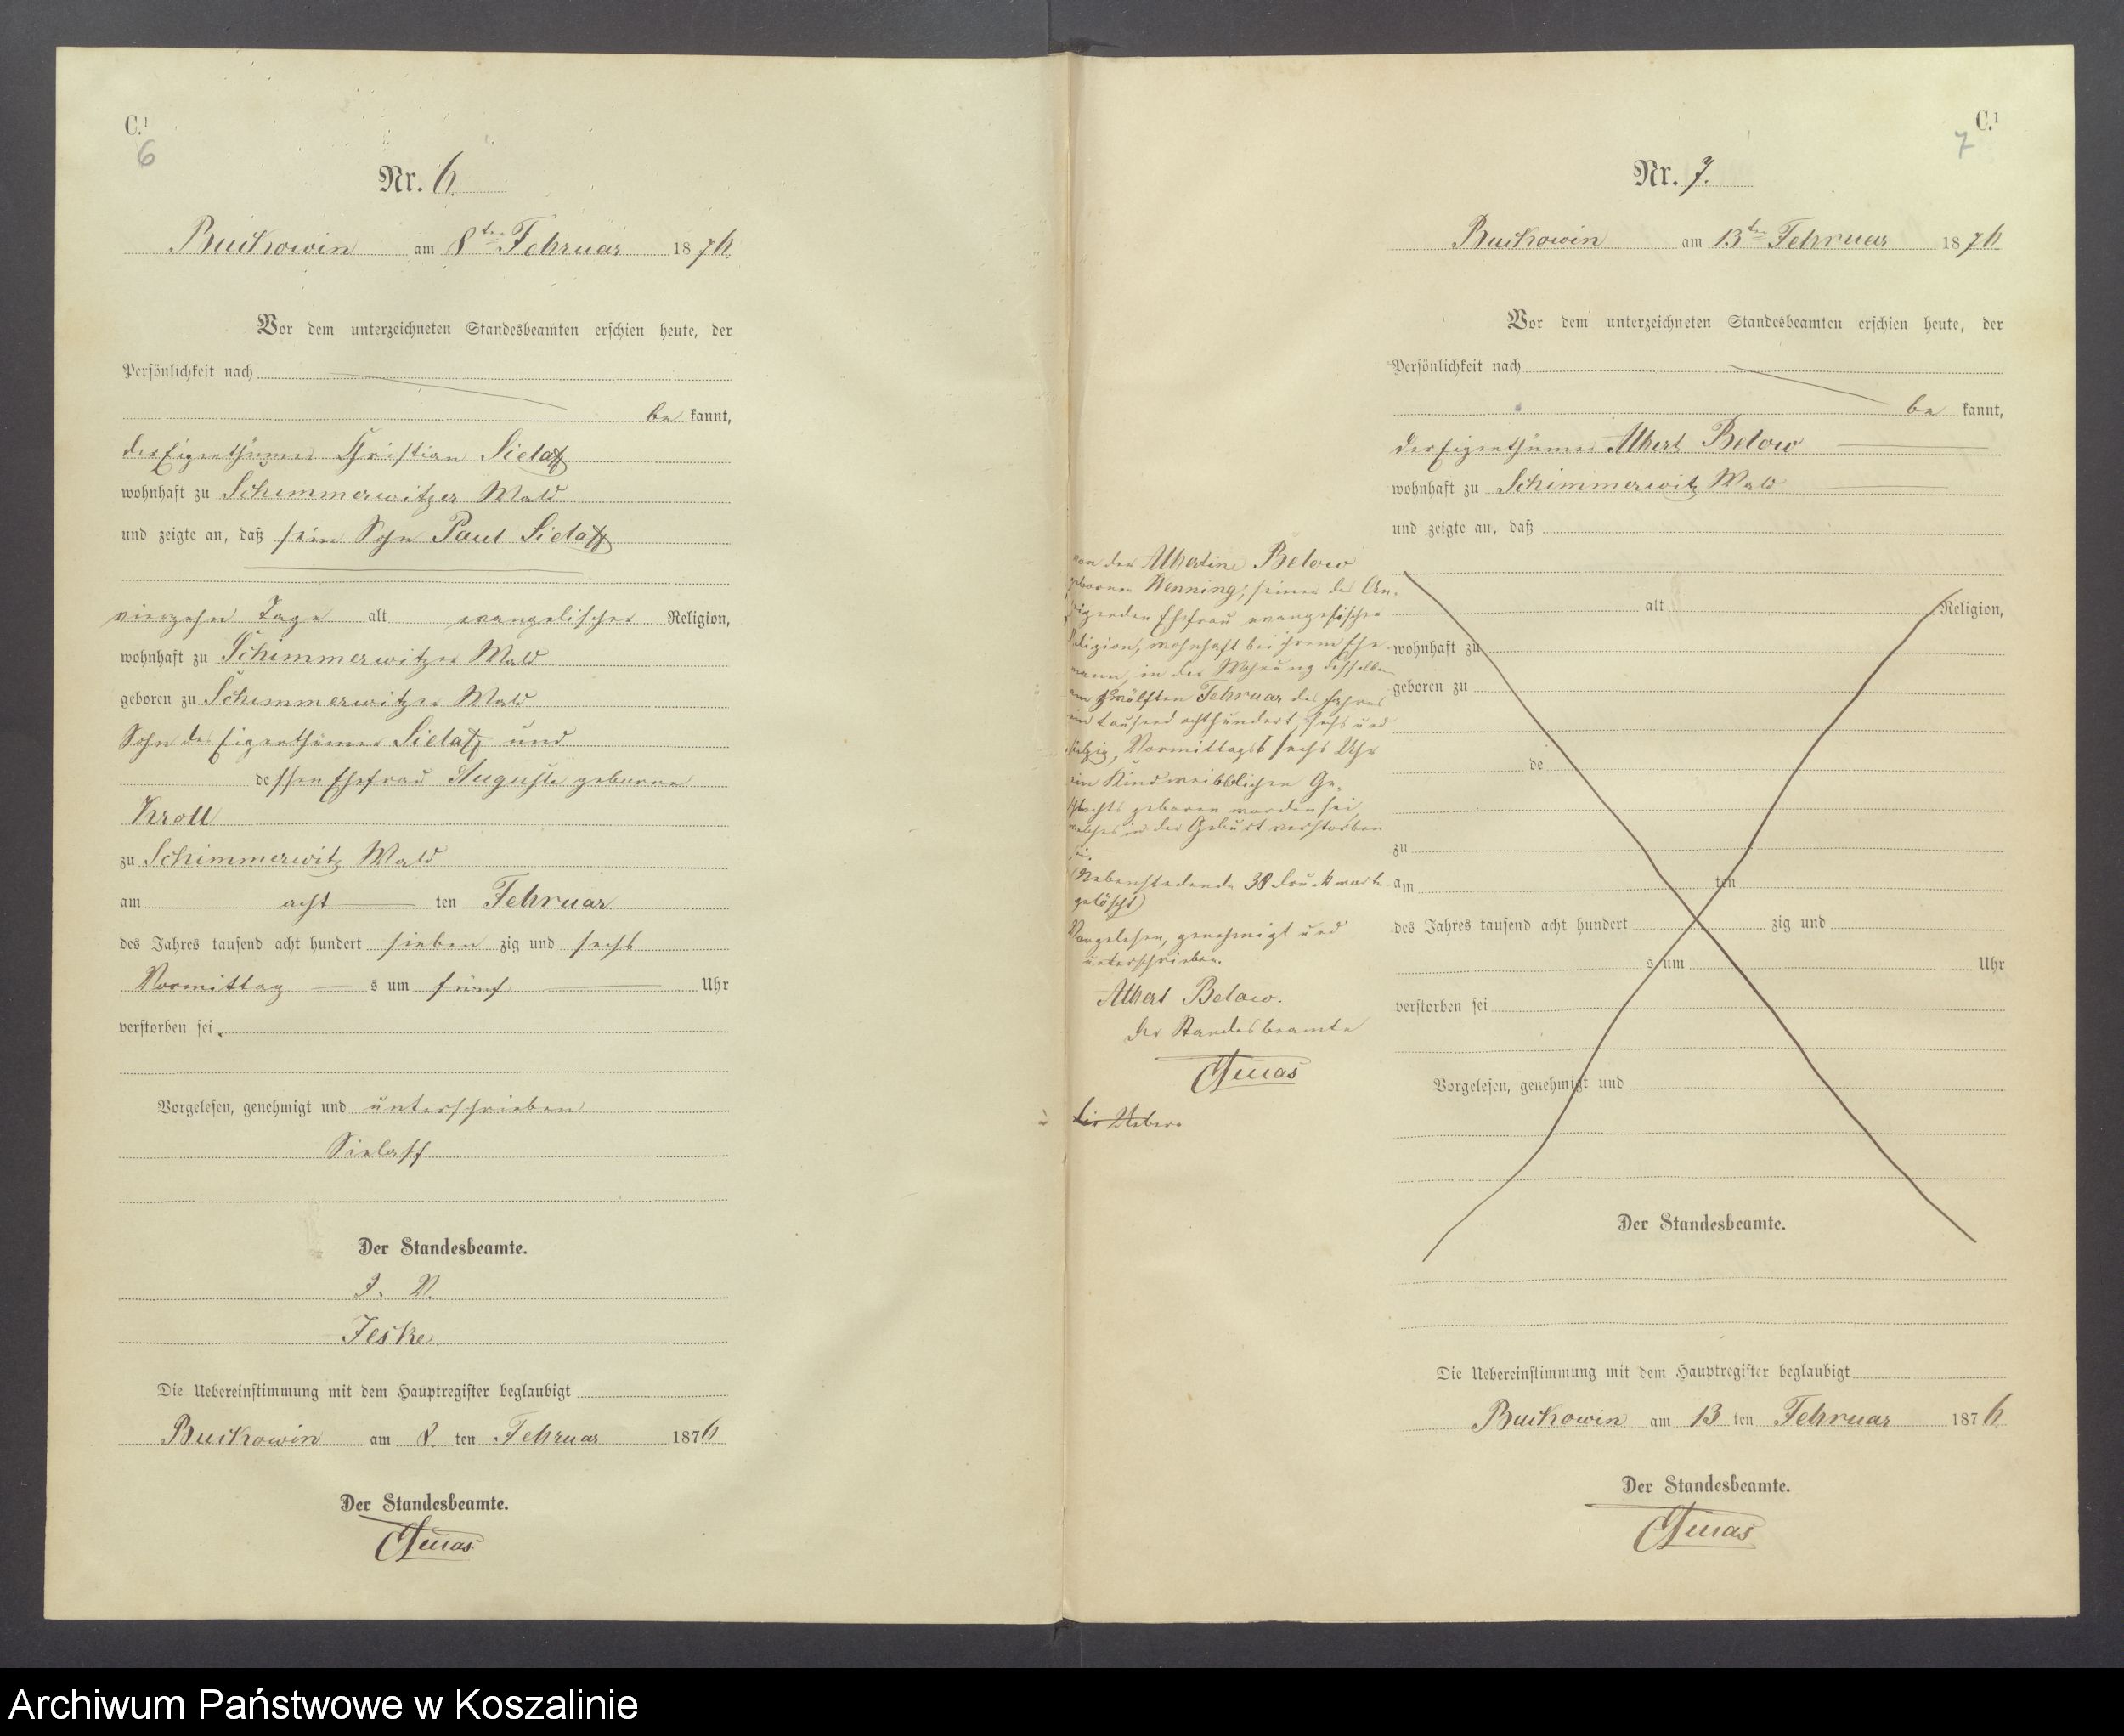 C.¹
6
Nr. 6.
Buckowin am 8ten Februar 1876.
Vor dem unterzeichneten Standesbeamten erschien heute, der
Persönlichkeit nach
be kannt,
der Eigenthümer Christian Sielaff
wohnhaft zu Schimmerwitzer Wald
und zeigte an, daß sein Sohn Paul Sielaff
vierzehn Tage alt evangelischer Religion,
wohnhaft zu Schimmerwitzer Wald
geboren zu Schimmerwitzer Wald
Sohn des Eigenthümer Sielaff und
dessen Ehefrau Auguste geborne
Kroll
zu Schimmerwitz Wald
am acht ten Februar
des Jahres tausend acht hundert sieben zig und sechs
Vormittag s um fünf Uhr
verstorben sei.
Vorgelesen, genehmigt und unterschrieben
Sielaff
Der Standesbeamte.
J. V.
Jeske.
Die Uebereinstimmung mit dem Hauptregister beglaubigt
Buckowin am 8. ten Februar 1876
Der Standesbeamte.
C.¹
7
Nr. 7.
Buckowin am 13ten Februar 1876
Vor dem unterzeichneten Standesbeamten erschien heute, der
Persönlichkeit nach
be kannt,
der Eigenthümer Albert Below
wohnhaft zu Schimmerwitz Wald
und zeigte an, daß
von der Albertine Below
geborner Henning, seiner des An-
zeigenden Ehefrau evangelischer
Religion, wohnhaft bei ihrem Ehe-
mann, in der Wohnung desselben
am zwölften Februar des Jahres
ein tausend achthundert, sechs und
siebzig, Vormittags sechs Uhr
ein Kind weiblichen Ge-
schlechts geboren worden sei,
welches in der Geburt verstorben
sei.
(Nebenstehende 38 Druckworte
gelöscht)
Vorgelesen, genehmigt und
unterschrieben.
Albert Below.
Der Standesbeamte
Die Ueber
alt Religion,
wohnhaft zu
geboren zu
de
zu
am ten
des Jahres tausend acht hundert zig und
s um Uhr
verstorben sei
Vorgelesen, genehmigt und
Der Standesbeamte.
Die Uebereinstimmung mit dem Hauptregister beglaubigt
Buckowin am 13 ten Februar 1876
Der Standesbeamte.
Archiwum Państwowe w Koszalinie